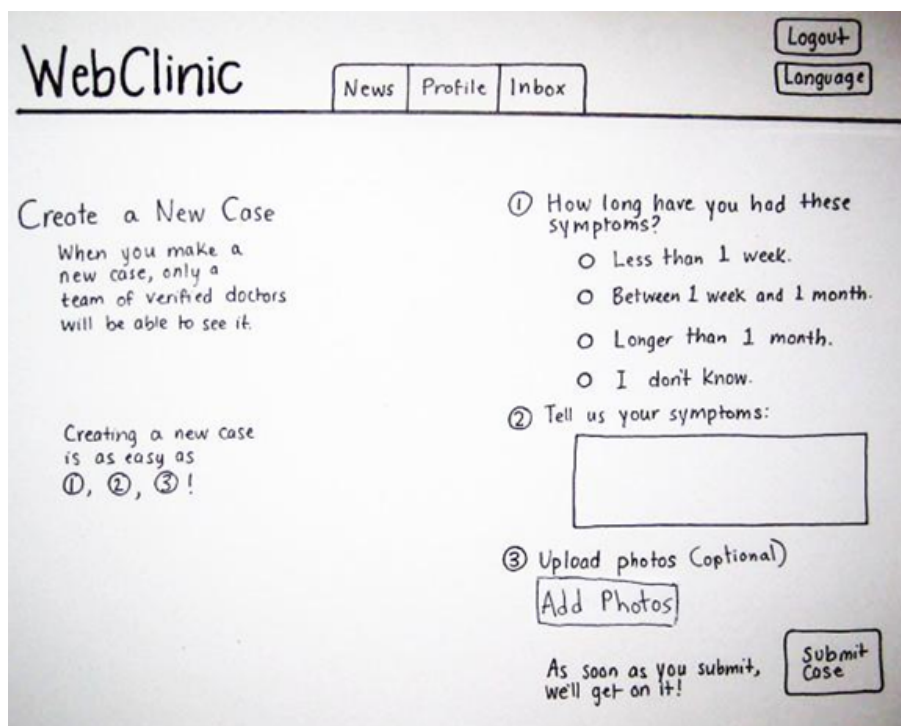 WebClinic
News Profile Inbox
Logout
Language
Create a New Case
When you make a
new case, only a
team of verified doctors
will be able to see it.
Creating a new case
is as easy as
①, ②, ③!
① How long have you had these
symptoms?
Less than 1 week.
Between 1 week and 1 month.
Longer than 1 month.
I don't know.
② Tell us your symptoms:
③ Upload photos (optional)
Add Photos
As soon as you submit,
we'll get on it!
Submit
Case